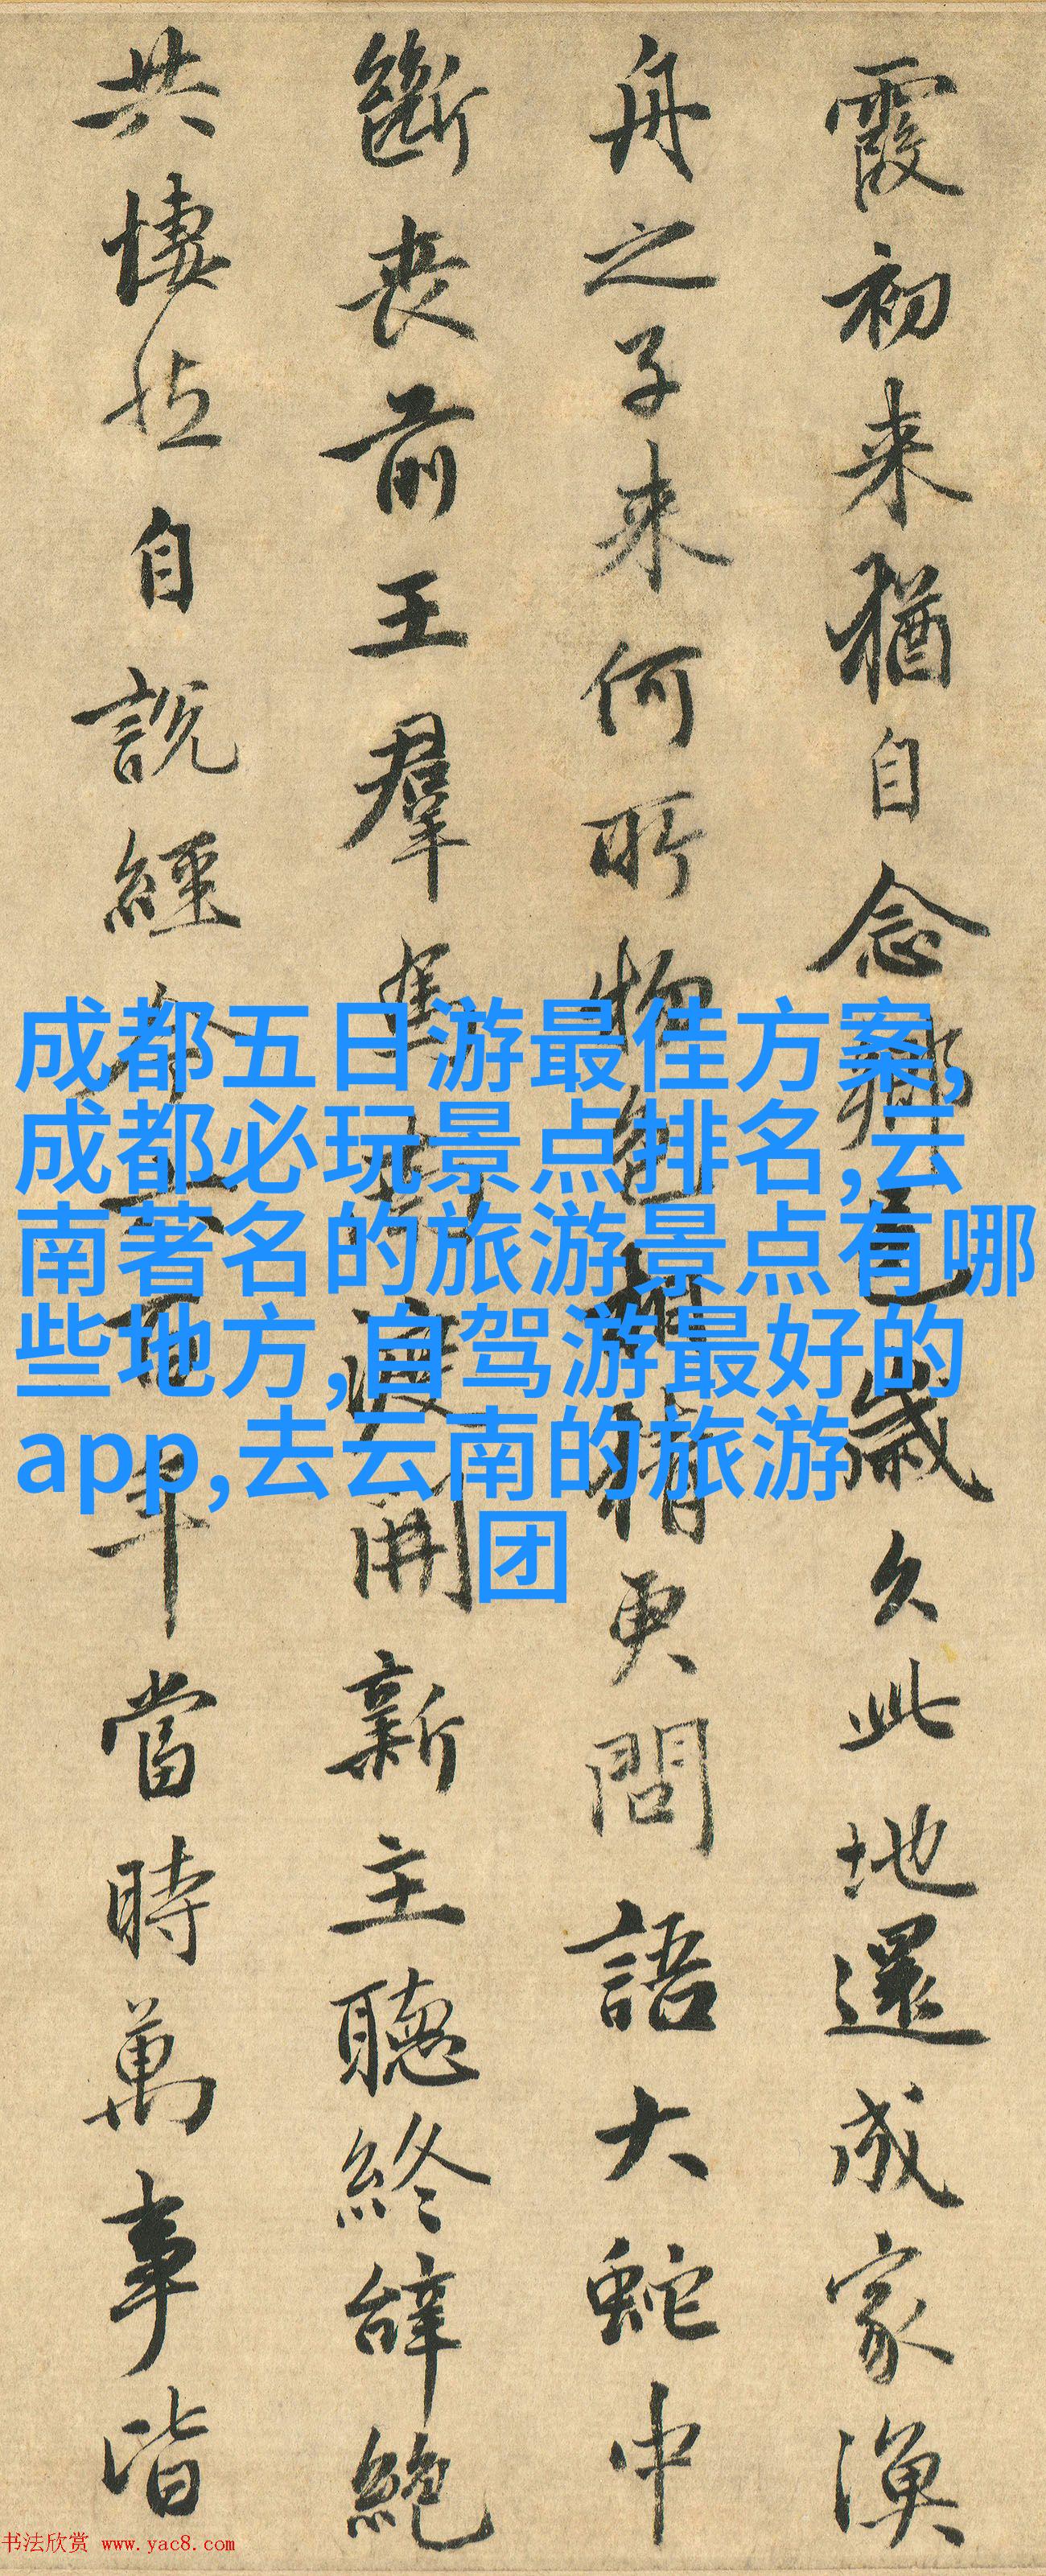 霞初来猶自念鄉邑歲久此地還成家漁
舟之子来何所物色相猜更問語大蛇中
斷喪前王羣馬南渡開新主聽終辭絕
共悽然自說經今六百年當時萬事皆
成都五日游最佳方案,
成都必玩景点排名,云
南著名的旅游景点有哪
些地方,自驾游最好的
app,去云南的旅游
团
书法欣赏 www.yac8.com